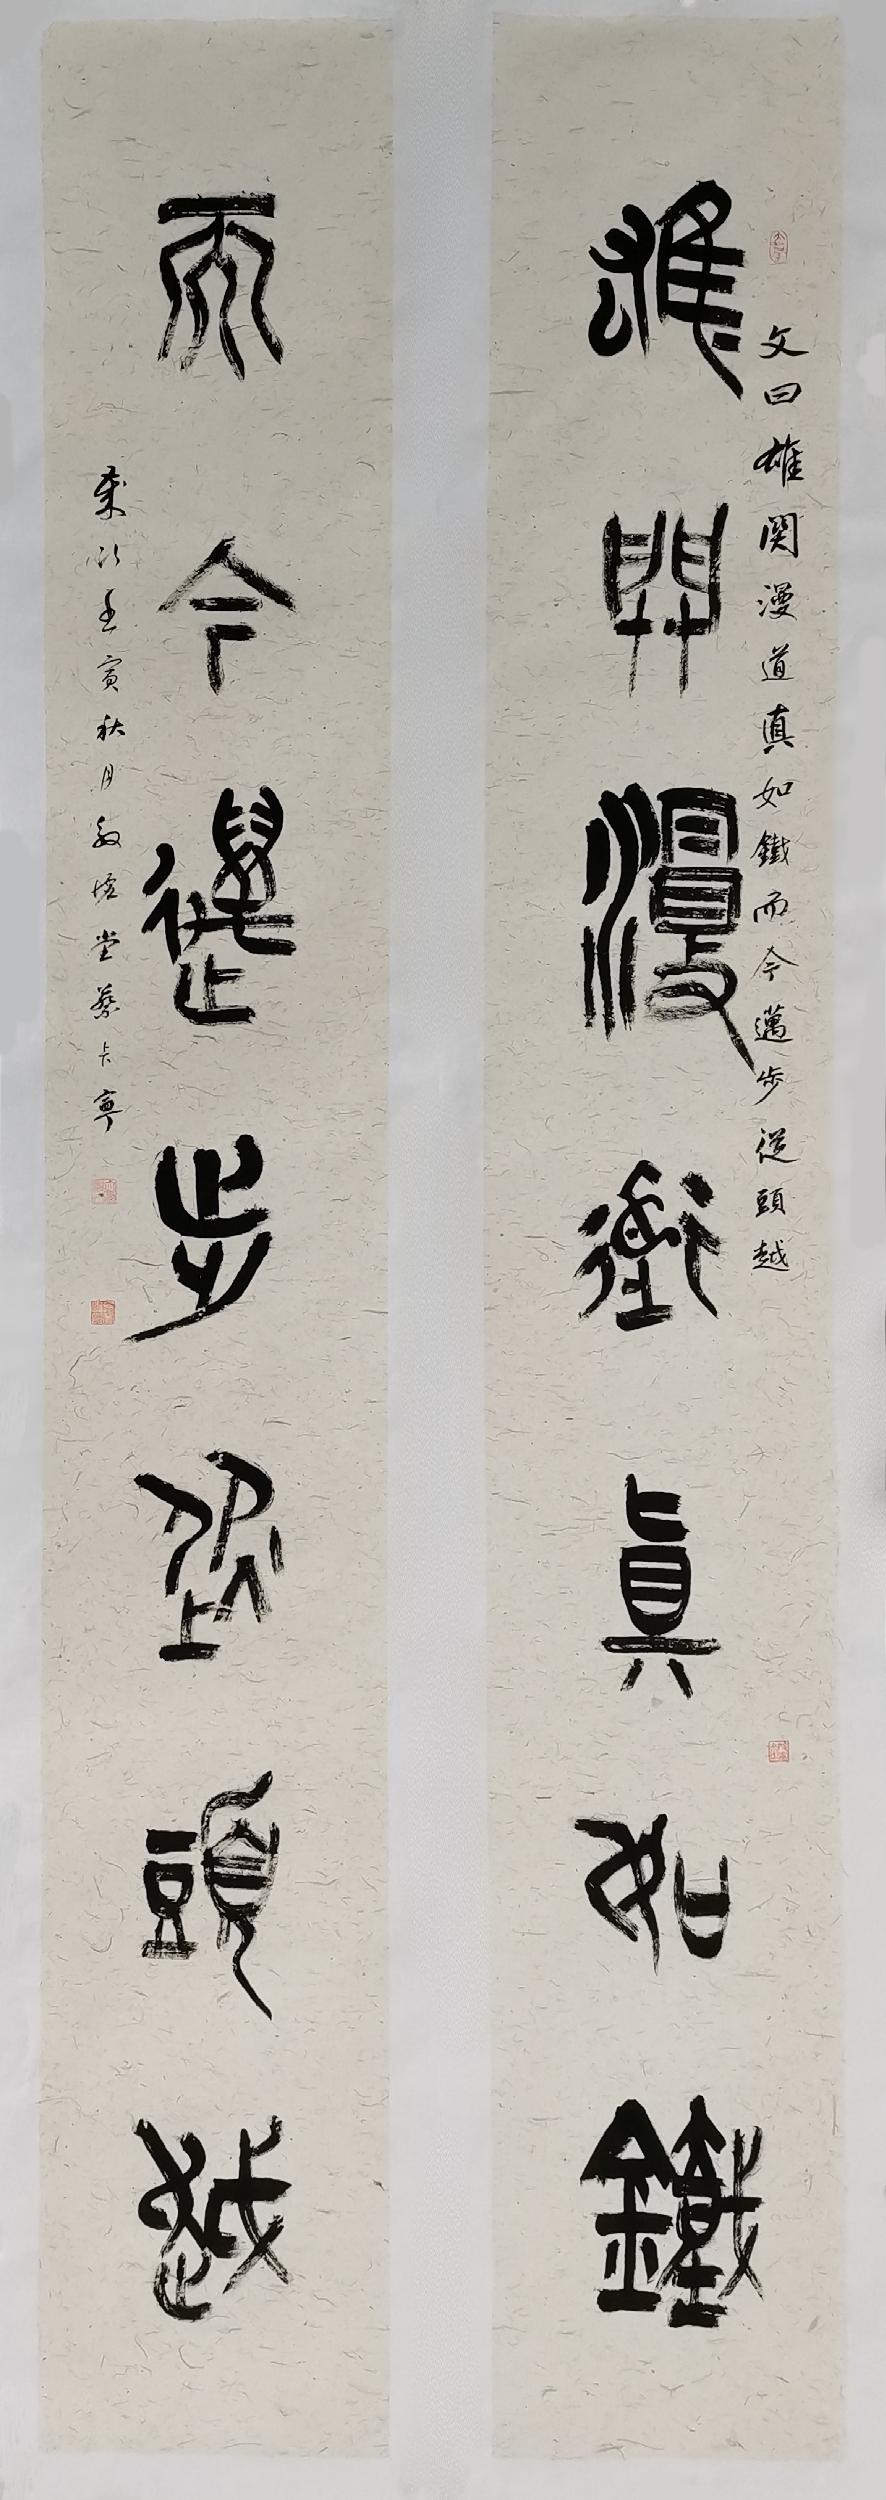 雄關漫道真如鐵
文曰雄関漫道真如鐵而今邁步從頭越
而今邁步從頭越
歲次壬寅秋月 堂蔡卡寧